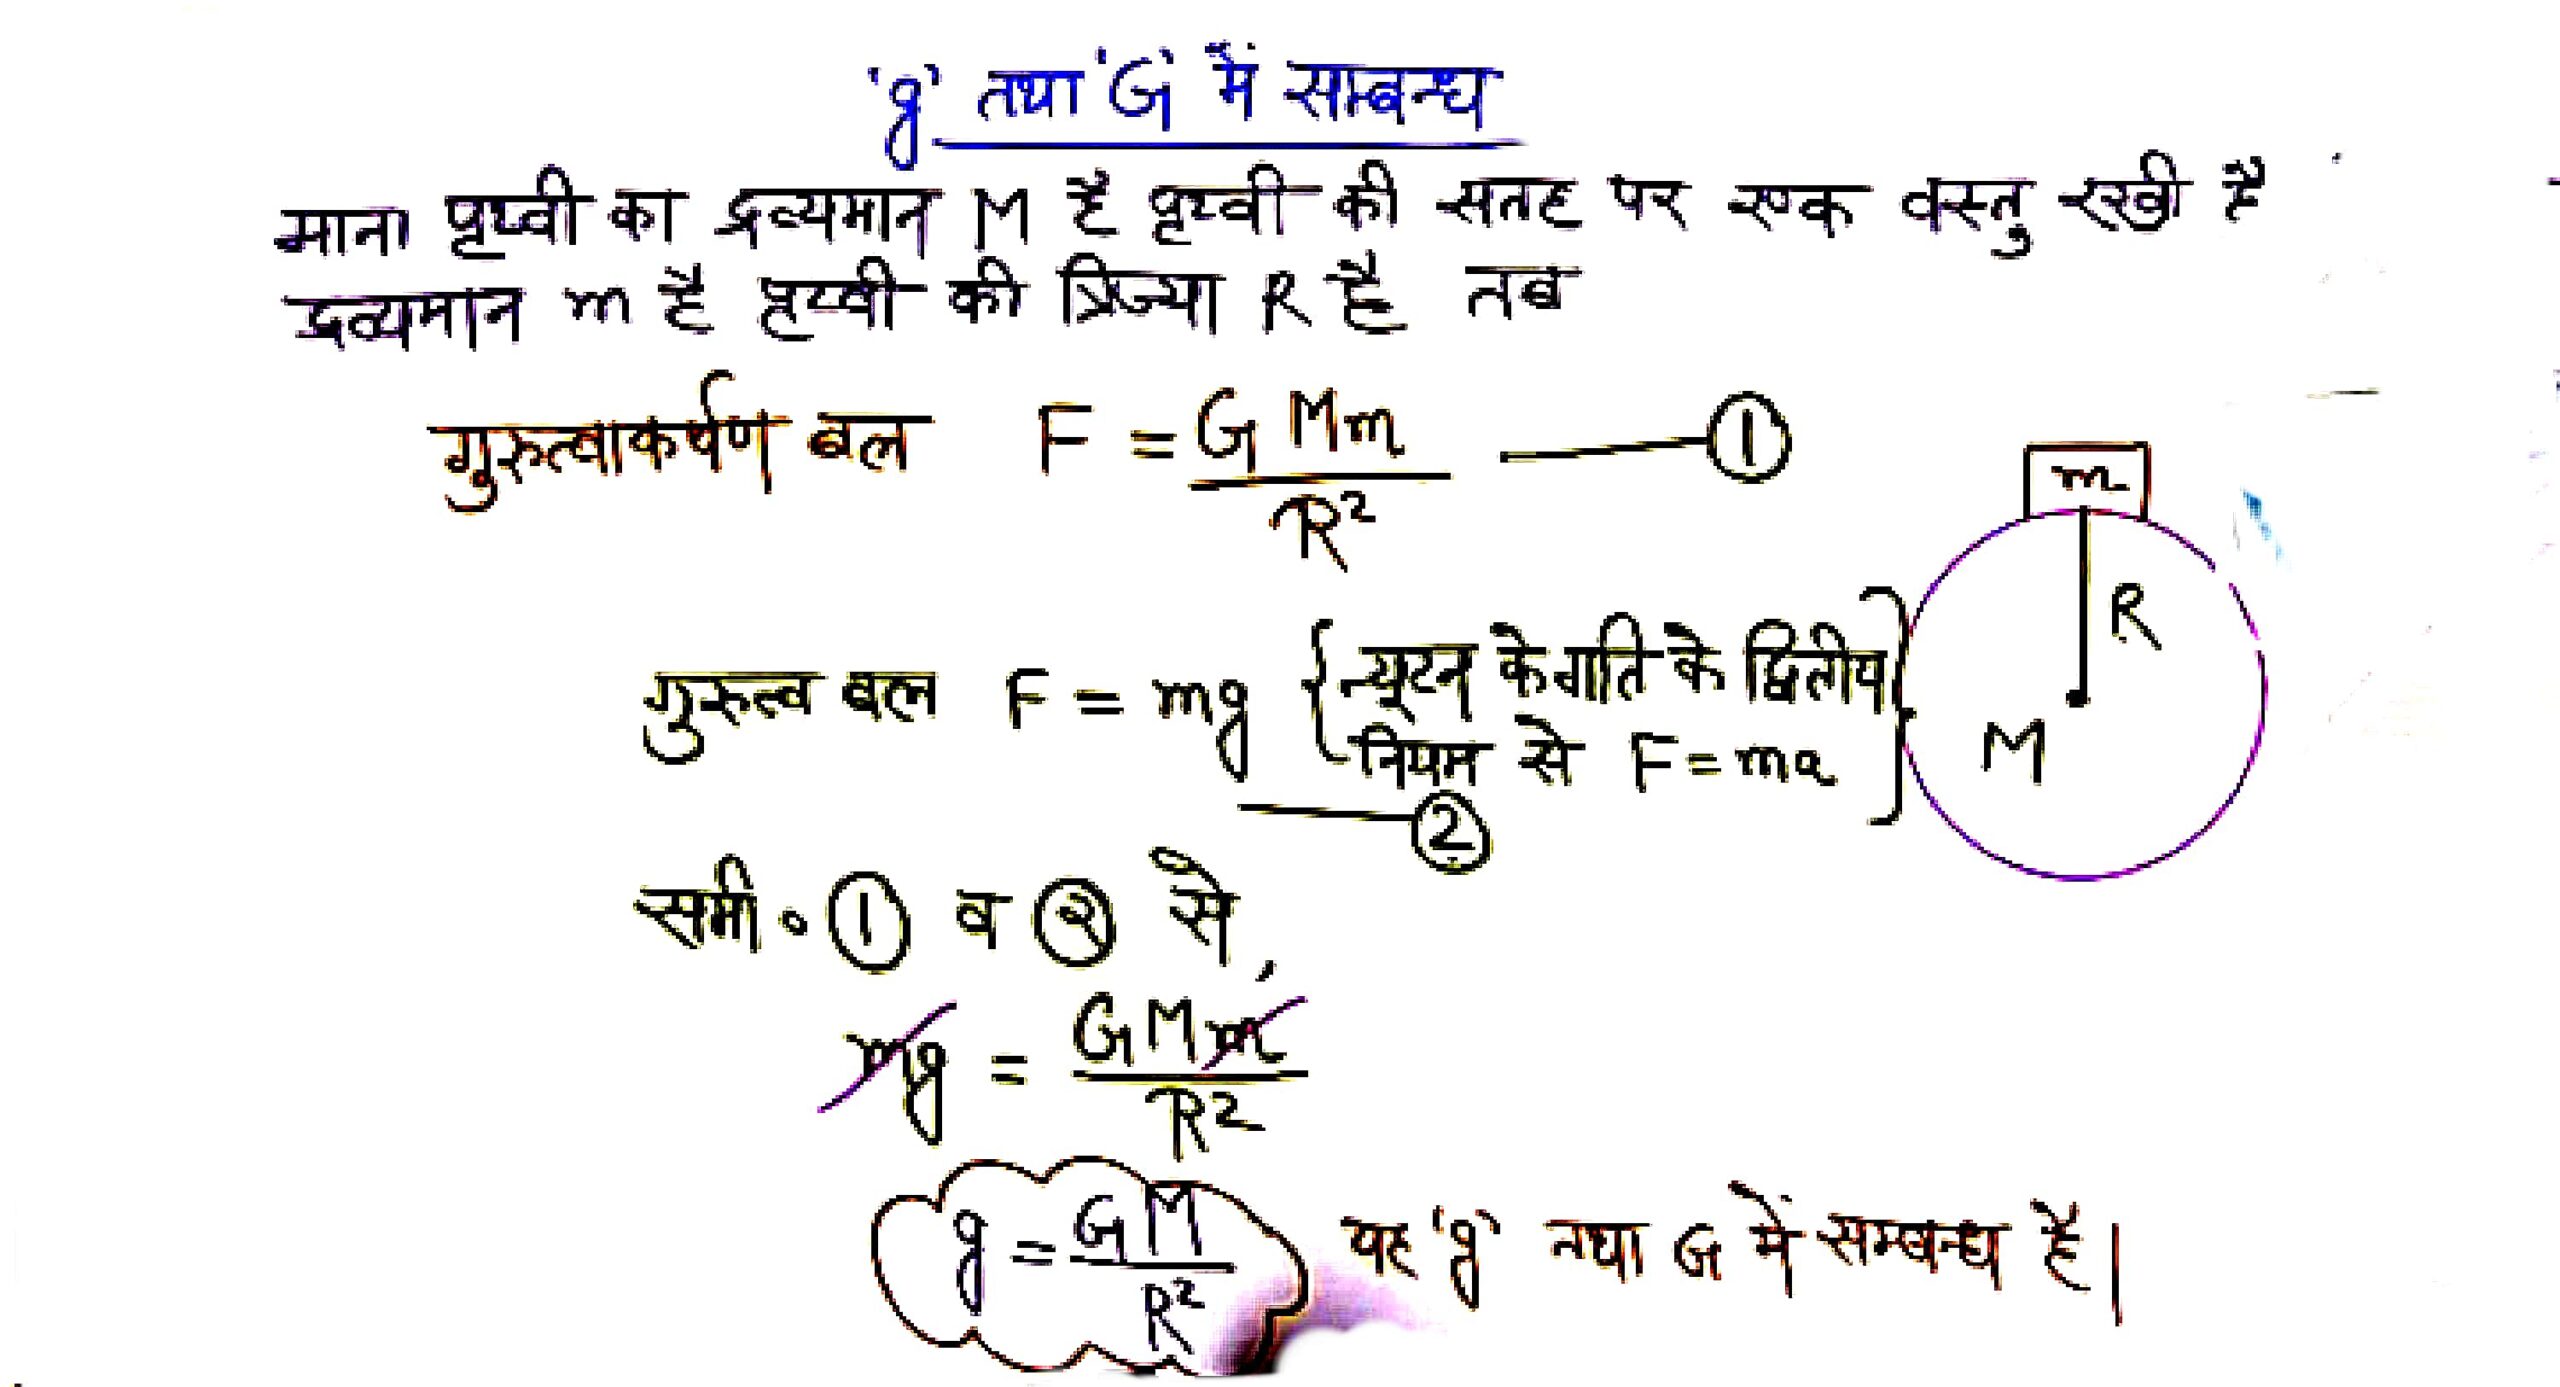 'g' तथा 'G' में सम्बन्ध
माना पृथ्वी का द्रव्यमान M है पृथ्वी की सतह पर एक वस्तु रखी है
द्रव्यमान m है पृथ्वी की त्रिज्या R है तब
गुरुत्वाकर्षण बल F = G Mm / R² —— ①
m
R
M
गुरुत्व बल F = mg { न्यूटन के गति के द्वितीय
नियम से F = ma }
—— ②
समी० ① व ② से,
mg = GMm / R²
g = GM / R² यह 'g' तथा G में सम्बन्ध है|